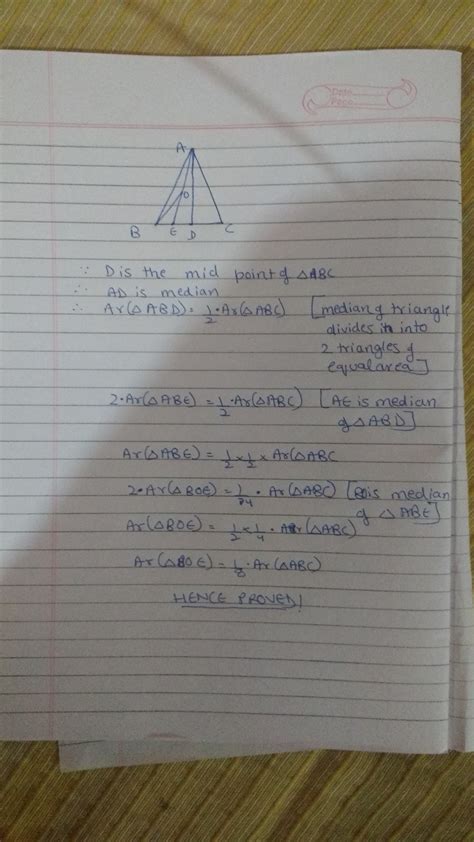 Date
Page
A
O
B E D C
∵ D is the mid point of △ABC
∴ AD is median
∴ Ar(△ABD) = 1/2 · Ar(△ABC) [median of triangle
divides it into
2 triangles of
equal area]
2·Ar(△ABE) = 1/2 · Ar(△ABC) [AE is median
of △ABD]
Ar(△ABE) = 1/2 × 1/2 × Ar(△ABC
2·Ar(△BOE) = 1/4 · Ar(△ABC) [BO is median
of △ABE]
Ar(△BOE) = 1/2 × 1/4 · Ar(△ABC)
Ar(△BOE) = 1/8 · Ar(△ABC)
HENCE PROVED!